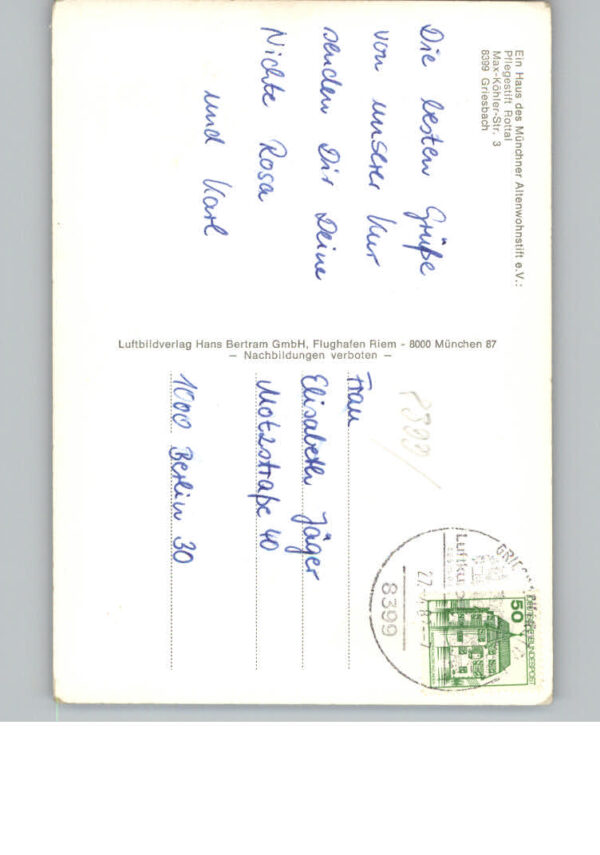 Ein Haus des Münchner Altenwohnstift e.V.:
Pflegestift Rottal
Max-Köhler-Str. 3
8399 Griesbach
Die besten Grüße
von unserer Kur
senden Dir Deine
Nichte Rosa
und Karl
Luftbildverlag Hans Bertram GmbH, Flughafen Riem - 8000 München 87
— Nachbildungen verboten —
8399
50
DEUTSCHE BUNDESPOST
8399
Frau
Elisabeth Jäger
Motzstraße 40
1000 Berlin 30